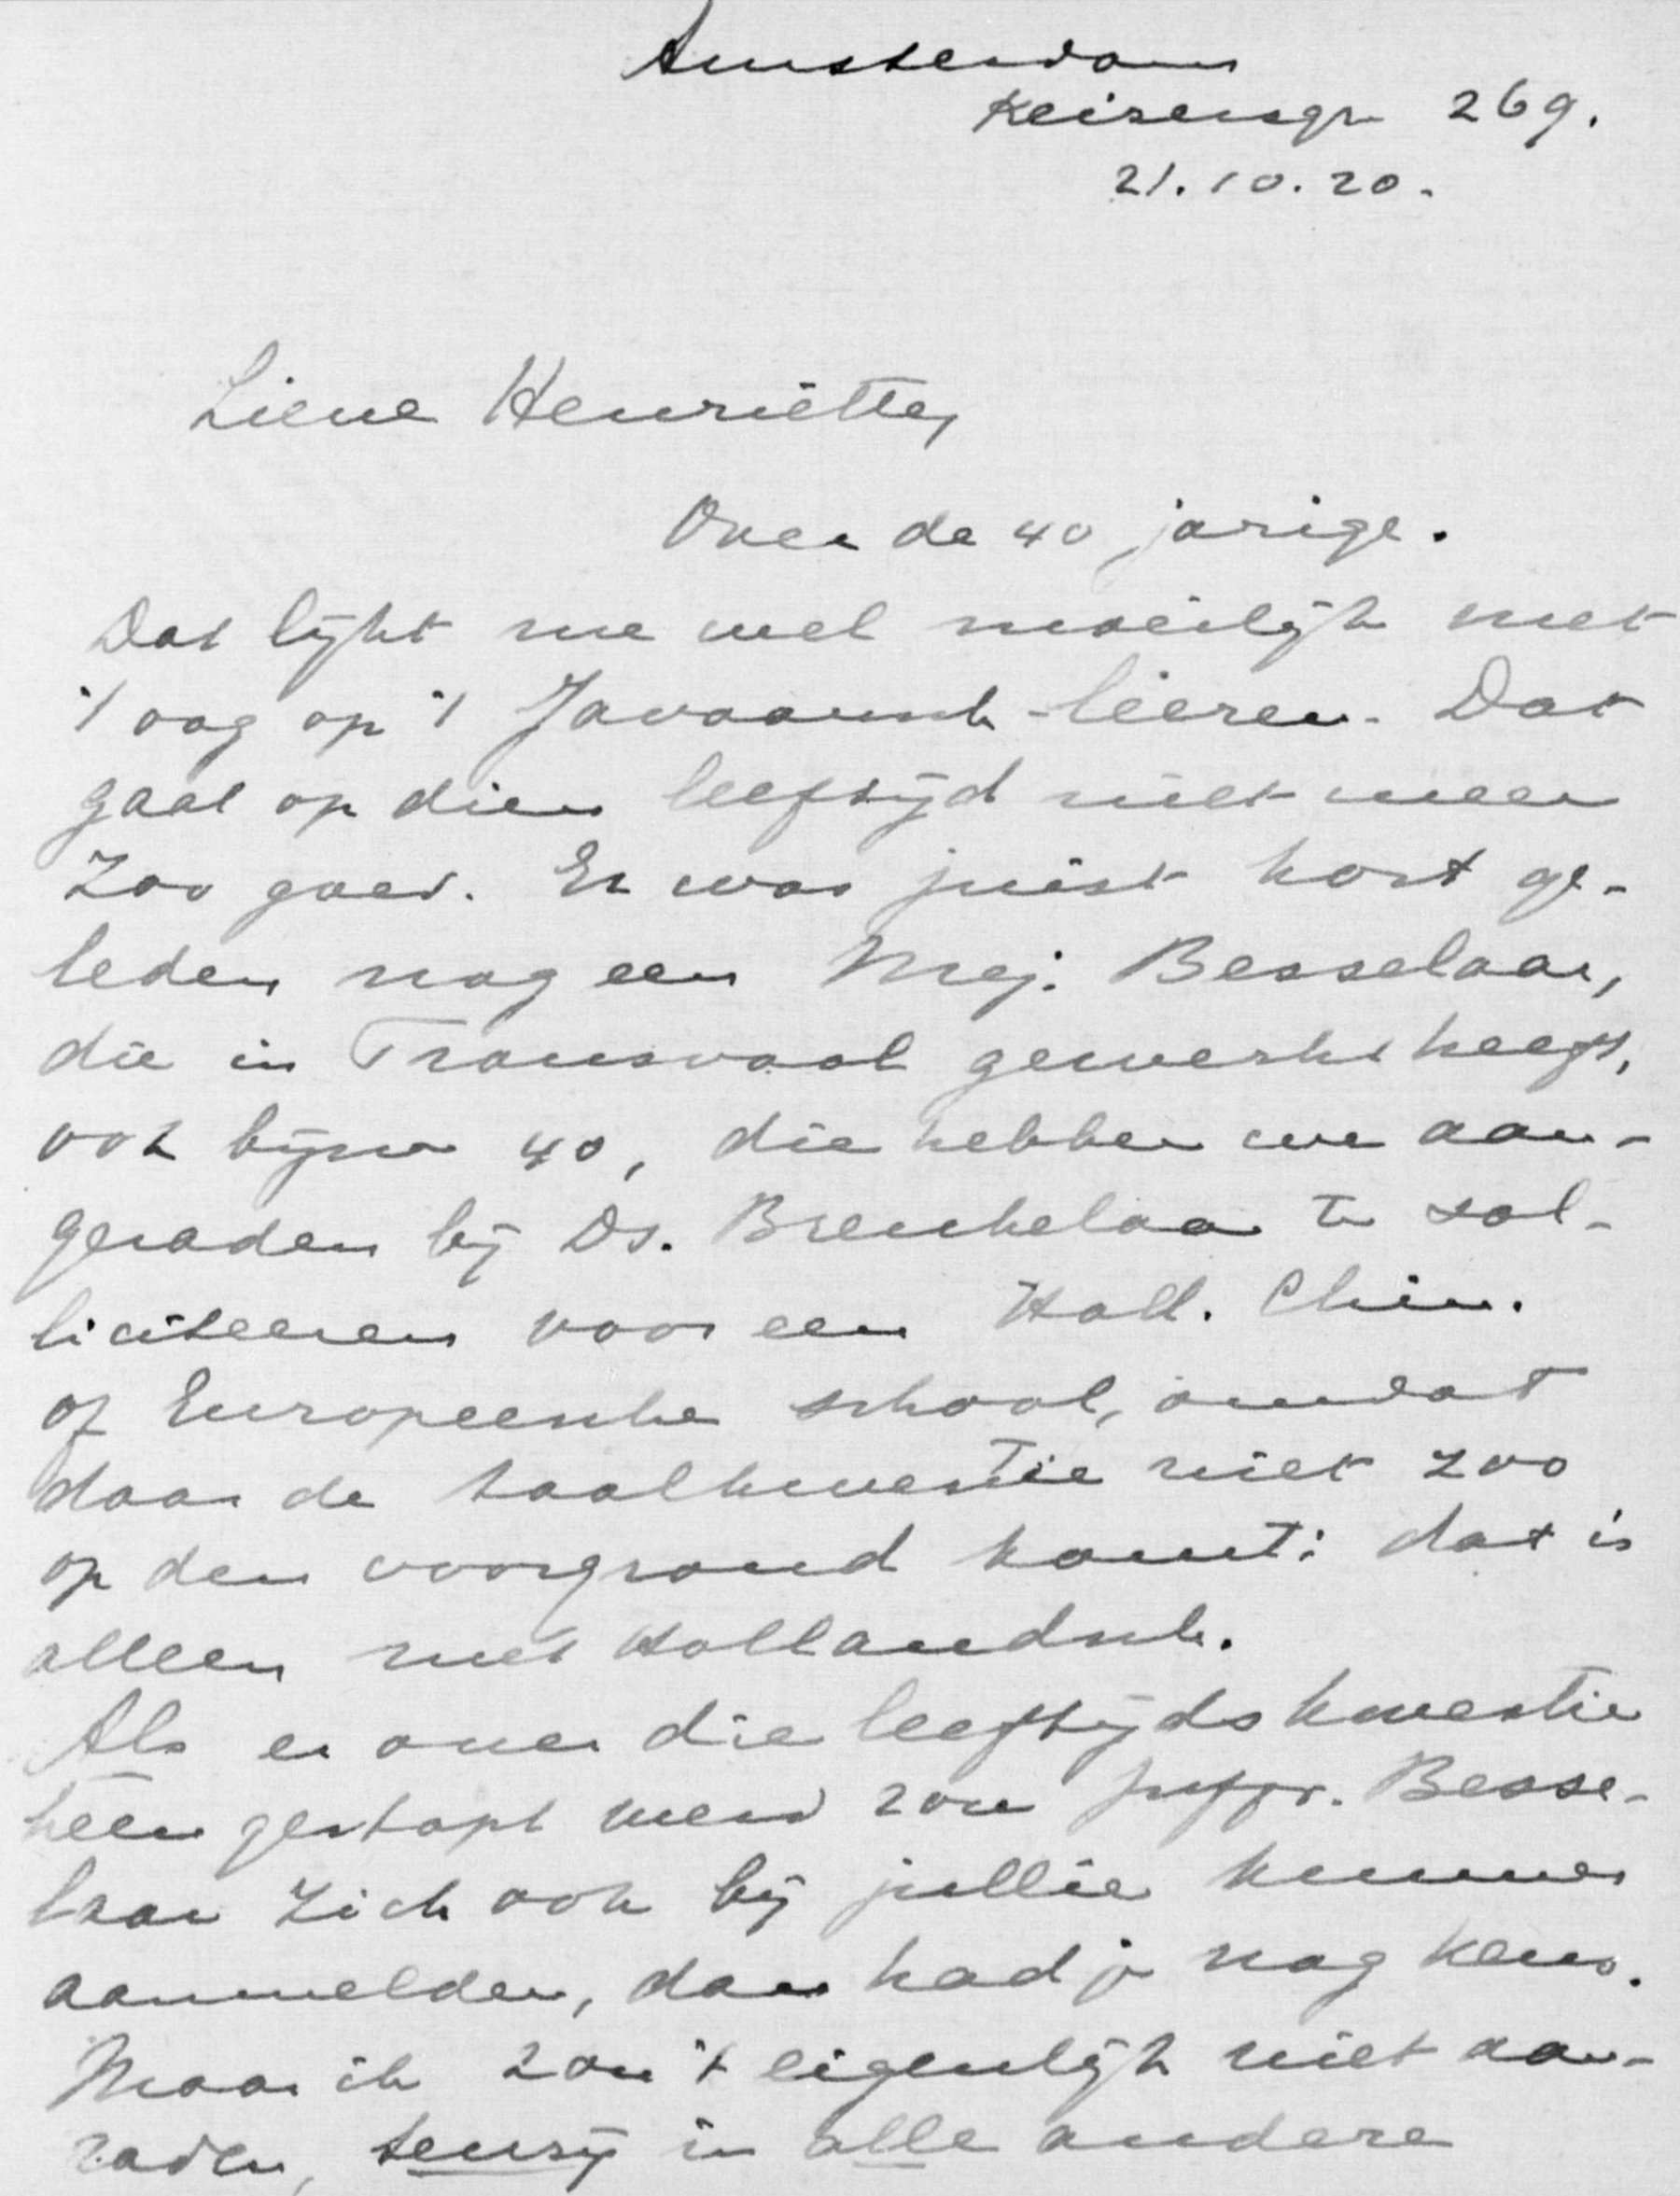 Amsterdam
Keizersgr 269.
21.10.20.
Lieve Henriëtte,
Over de 40 jarige.
Dat lijkt me wel moeilijk met
't oog op 't Javaansch-leeren. Dat
gaat op dien leeftijd niet meer
zoo goed. Er was juist kort ge-
leden nog een Mej. Besselaar,
die in Transvaal gewerkt heeft,
ook bijna 40, die hebben we aan-
geraden bij Ds. Breukelaar te sol-
liciteeren voor een Holl. Chin.
of Europeesche school, omdat
daar de taalkwestie niet zoo
op den voorgrond komt: dat is
alleen met Hollandsch.
Als er over die leeftijdskwestie
heen gestapt werd zou juffr. Besse-
laar zich ook bij jullie kunnen
aanmelden, dan had je nog keus.
Maar ik zou 't eigenlijk niet aan-
raden, tenzij in alle andere